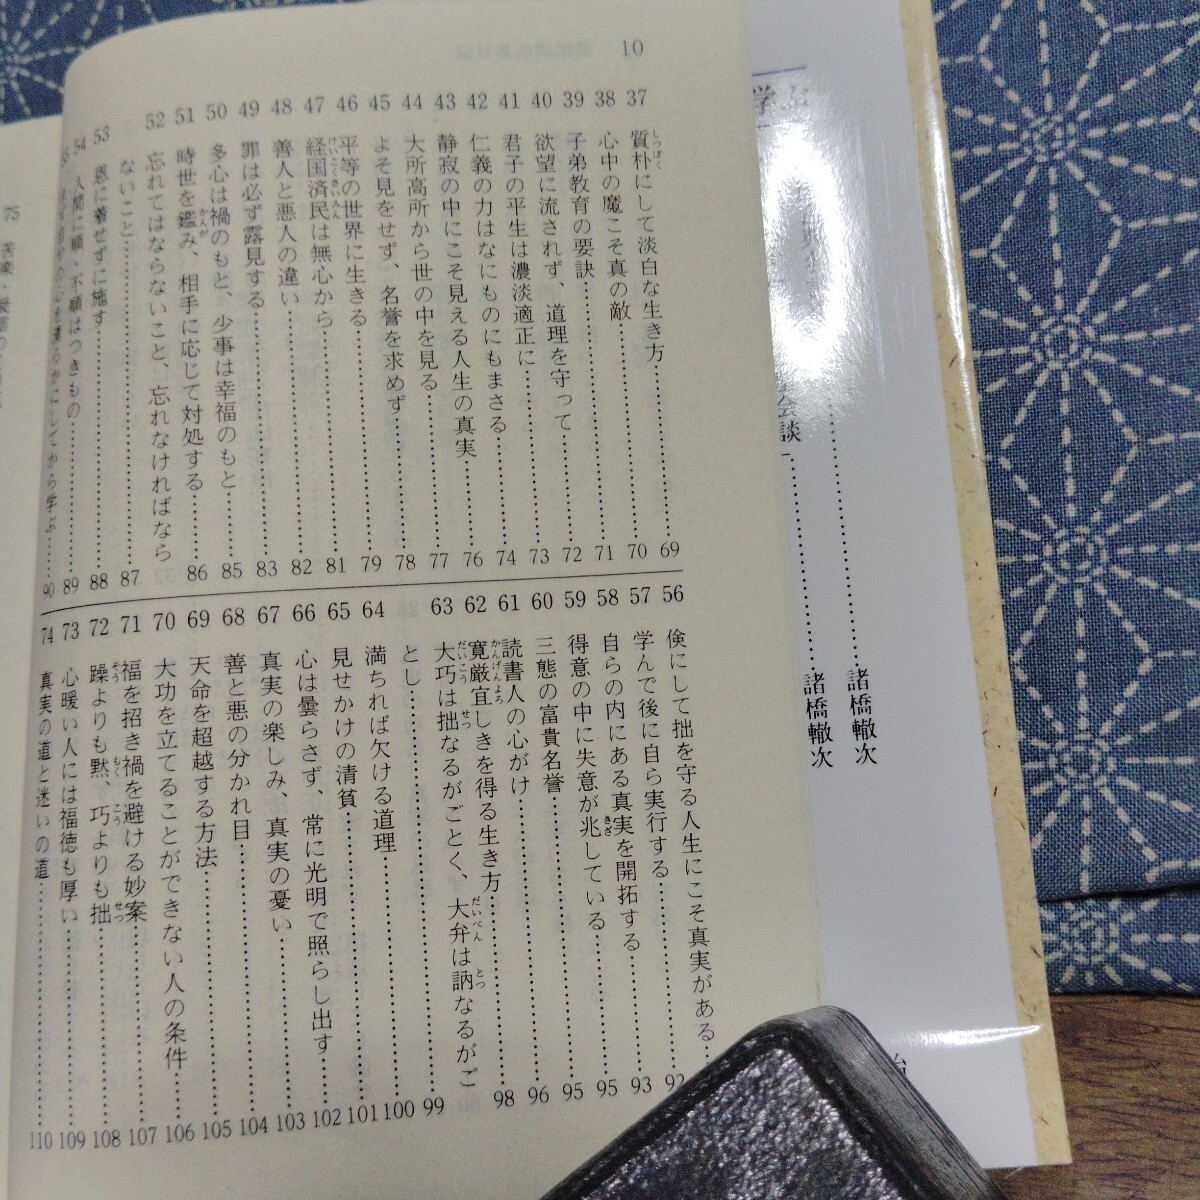 10
37 質朴にして淡白な生き方……69
38 心中の魔こそ真の敵……70
39 子弟教育の要訣……71
40 欲望に流されず、道理を守って……72
41 君子の平生は濃淡適正に……73
42 仁義の力はなにものにもまさる……74
43 静寂の中にこそ見える人生の真実……76
44 大所高所から世の中を見る……77
45 よそ見をせず、名誉を求めず……78
46 平等の世界に生きる……79
47 経国済民は無心から……81
48 善人と悪人の違い……82
49 罪は必ず露見する……83
50 多心は禍のもと、少事は幸福のもと……85
51 時世を鑑み、相手に応じて対処する……86
52 忘れてはならないこと、忘れなければなら
ないこと……87
53 恩に着せずに施す……88
54 人間に順・不順はつきもの……89
55 心を清らかにしてから学ぶ……90
56 倹にして拙を守る人生にこそ真実がある……92
57 学んで後に自ら実行する……93
58 自らの内にある真実を開拓する……95
59 得意の中に失意が兆している……95
60 三態の富貴名誉……96
61 読書人の心がけ……98
62 寛厳宜しきを得る生き方
63 大巧は拙なるがごとく、大弁は訥なるがご
とし……99
64 満ちれば欠ける道理……100
65 見せかけの清貧……101
66 心は曇らさず、常に光明で照らし出す……102
67 真実の楽しみ、真実の憂い……103
68 善と悪の分かれ目……104
69 天命を超越する方法……105
70 大功を立てることができない人の条件……106
71 福を招き禍を避ける妙案……107
72 躁よりも黙、巧よりも拙……108
73 心暖い人には福徳も厚い……109
74 真実の道と迷いの道……110
75 苦楽・
学ぶ
……諸橋轍次
会談……諸橋轍次